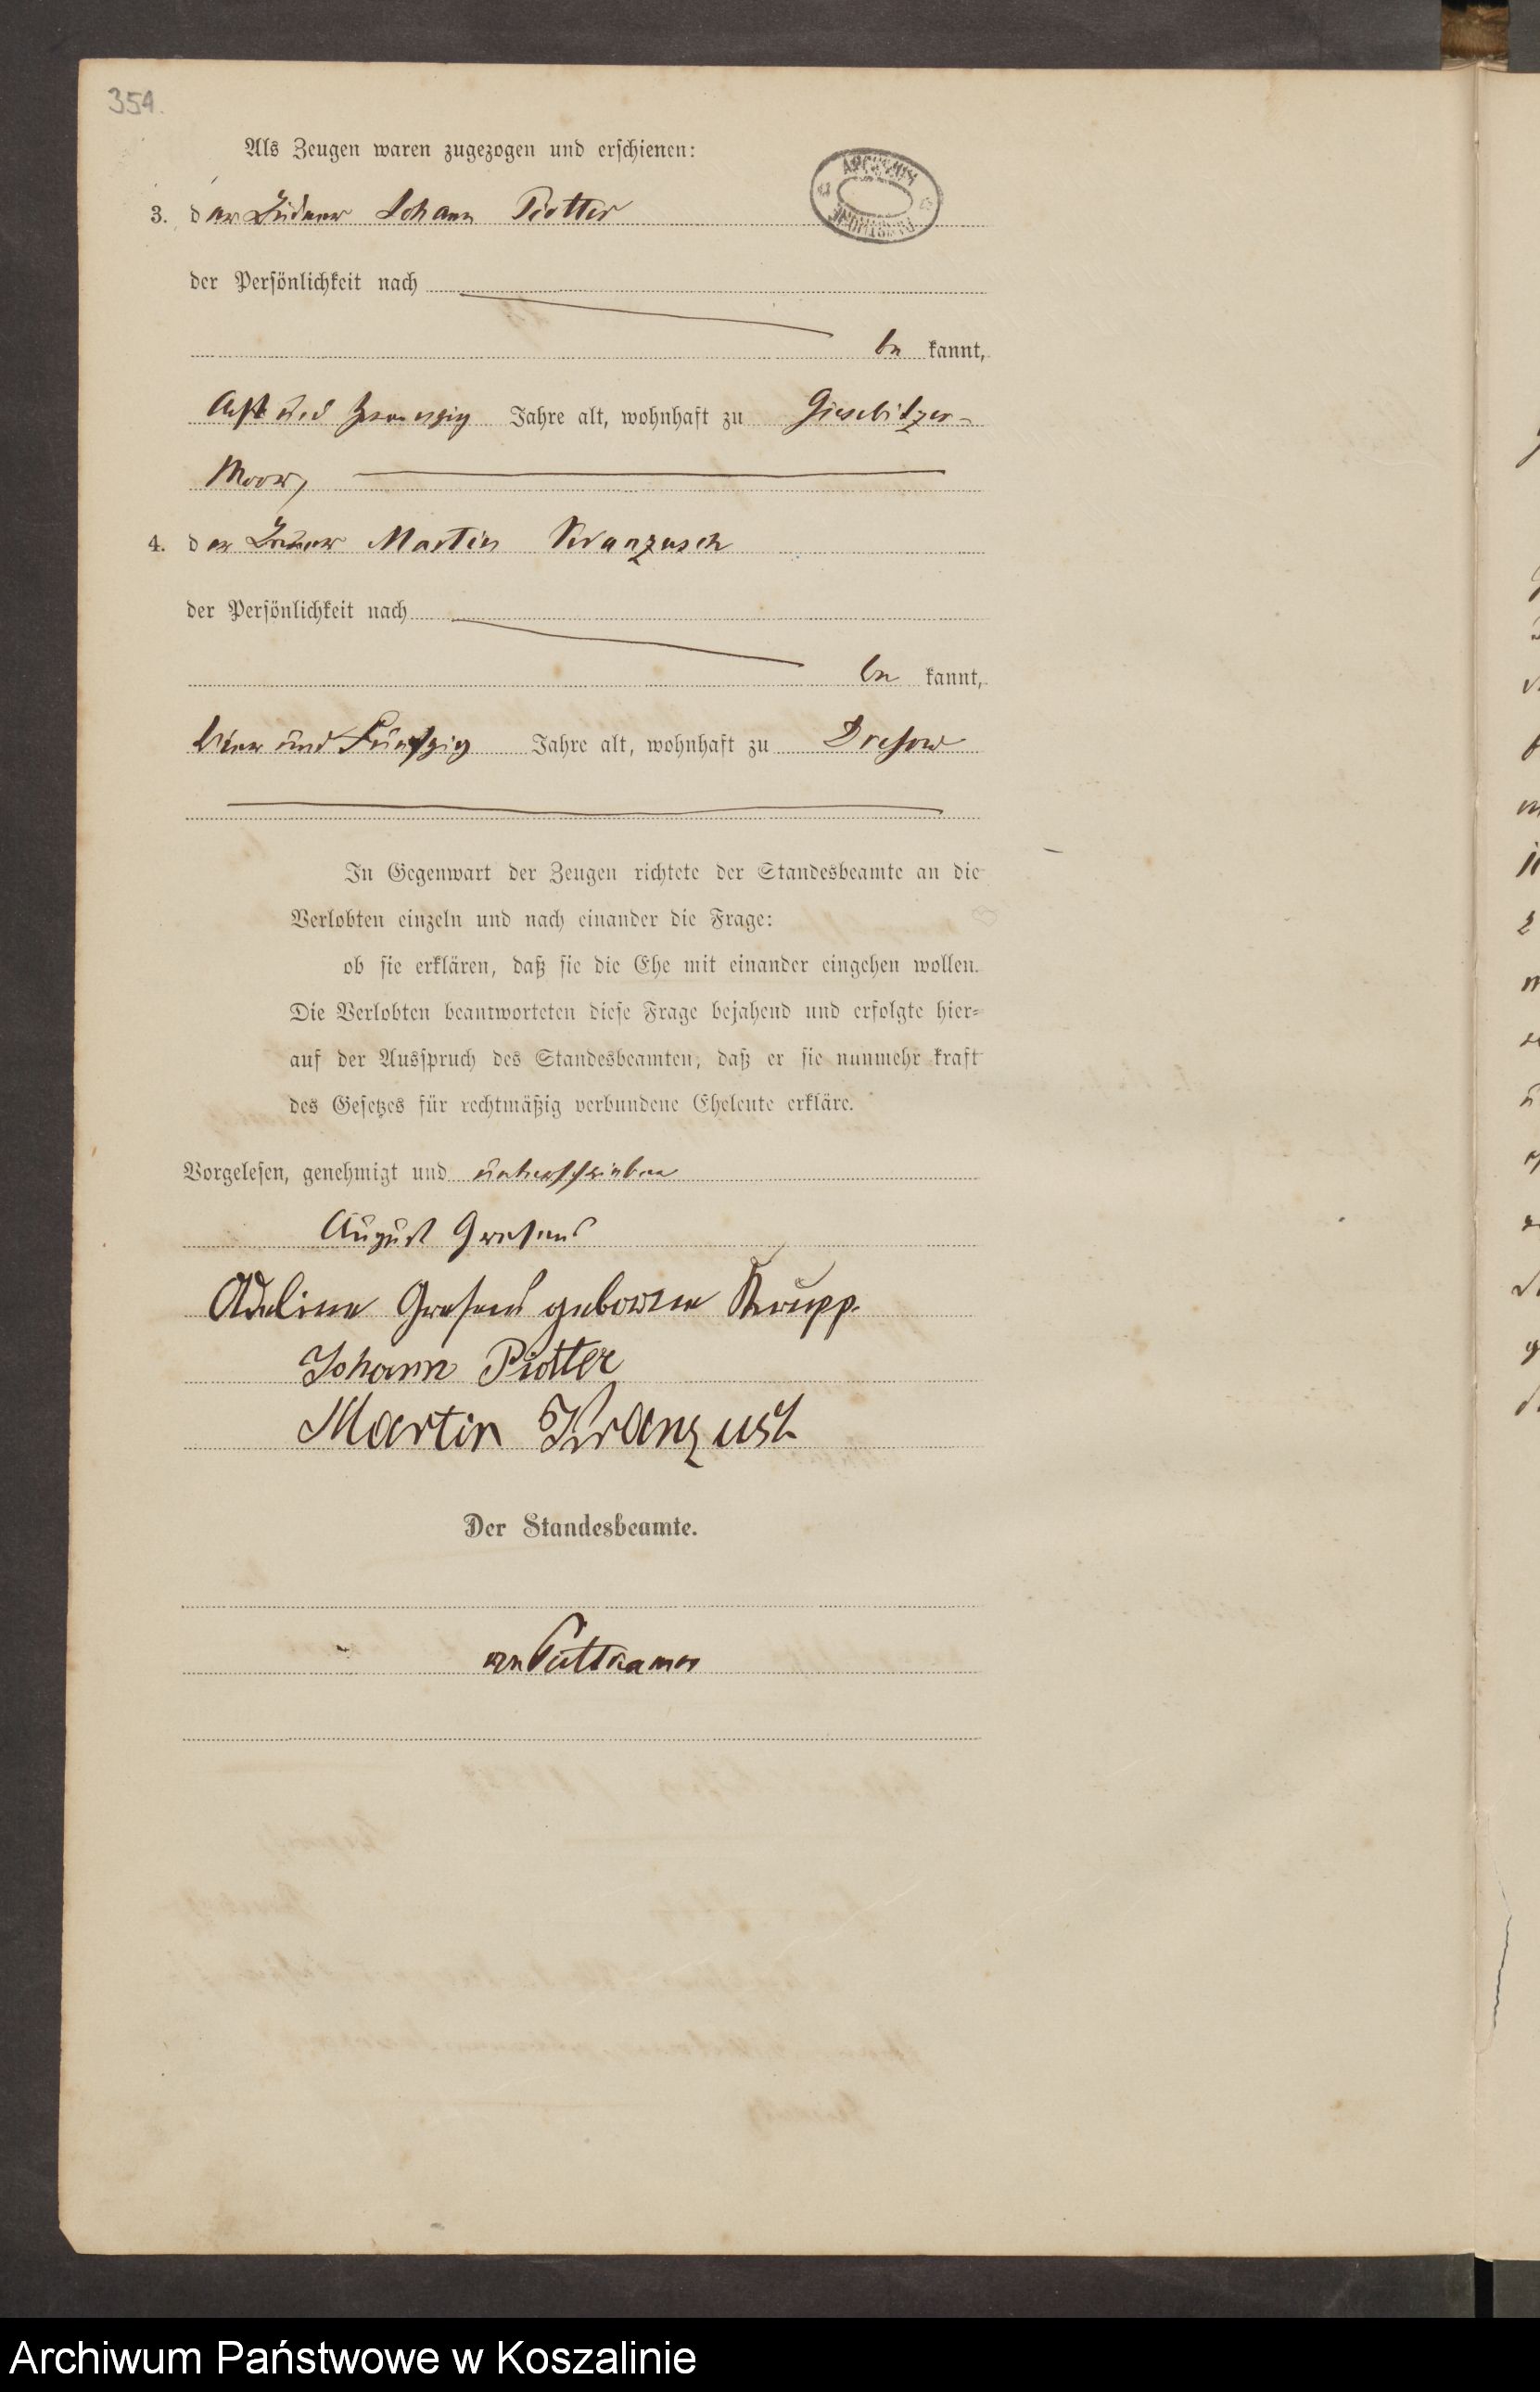 354.
Als Zeugen waren zugezogen und erschienen:
3. der Büdner Johann Piotter
der Persönlichkeit nach
be kannt,
Acht und zwanzig Jahre alt, wohnhaft zu Giesebitzer-
Moor,
4. der Martin Kranzusch
der Persönlichkeit nach
be kannt,
Vier und Fünfzig Jahre alt, wohnhaft zu Dresow
In Gegenwart der Zeugen richtete der Standesbeamte an die
Verlobten einzeln und nach einander die Frage:
ob sie erklären, daß sie die Ehe mit einander eingehen wollen.
Die Verlobten beantworteten diese Frage bejahend und erfolgte hier-
auf der Ausspruch des Standesbeamten, daß er sie nunmehr kraft
des Gesetzes für rechtmäßig verbundene Eheleute erkläre.
Vorgelesen, genehmigt und unterschrieben
August Gresens
Adeline Gresens geborene Krupp.
Johann Piotter
Martin Kranzusch
Der Standesbeamte.
von Puttkamer
Archiwum Państwowe w Koszalinie